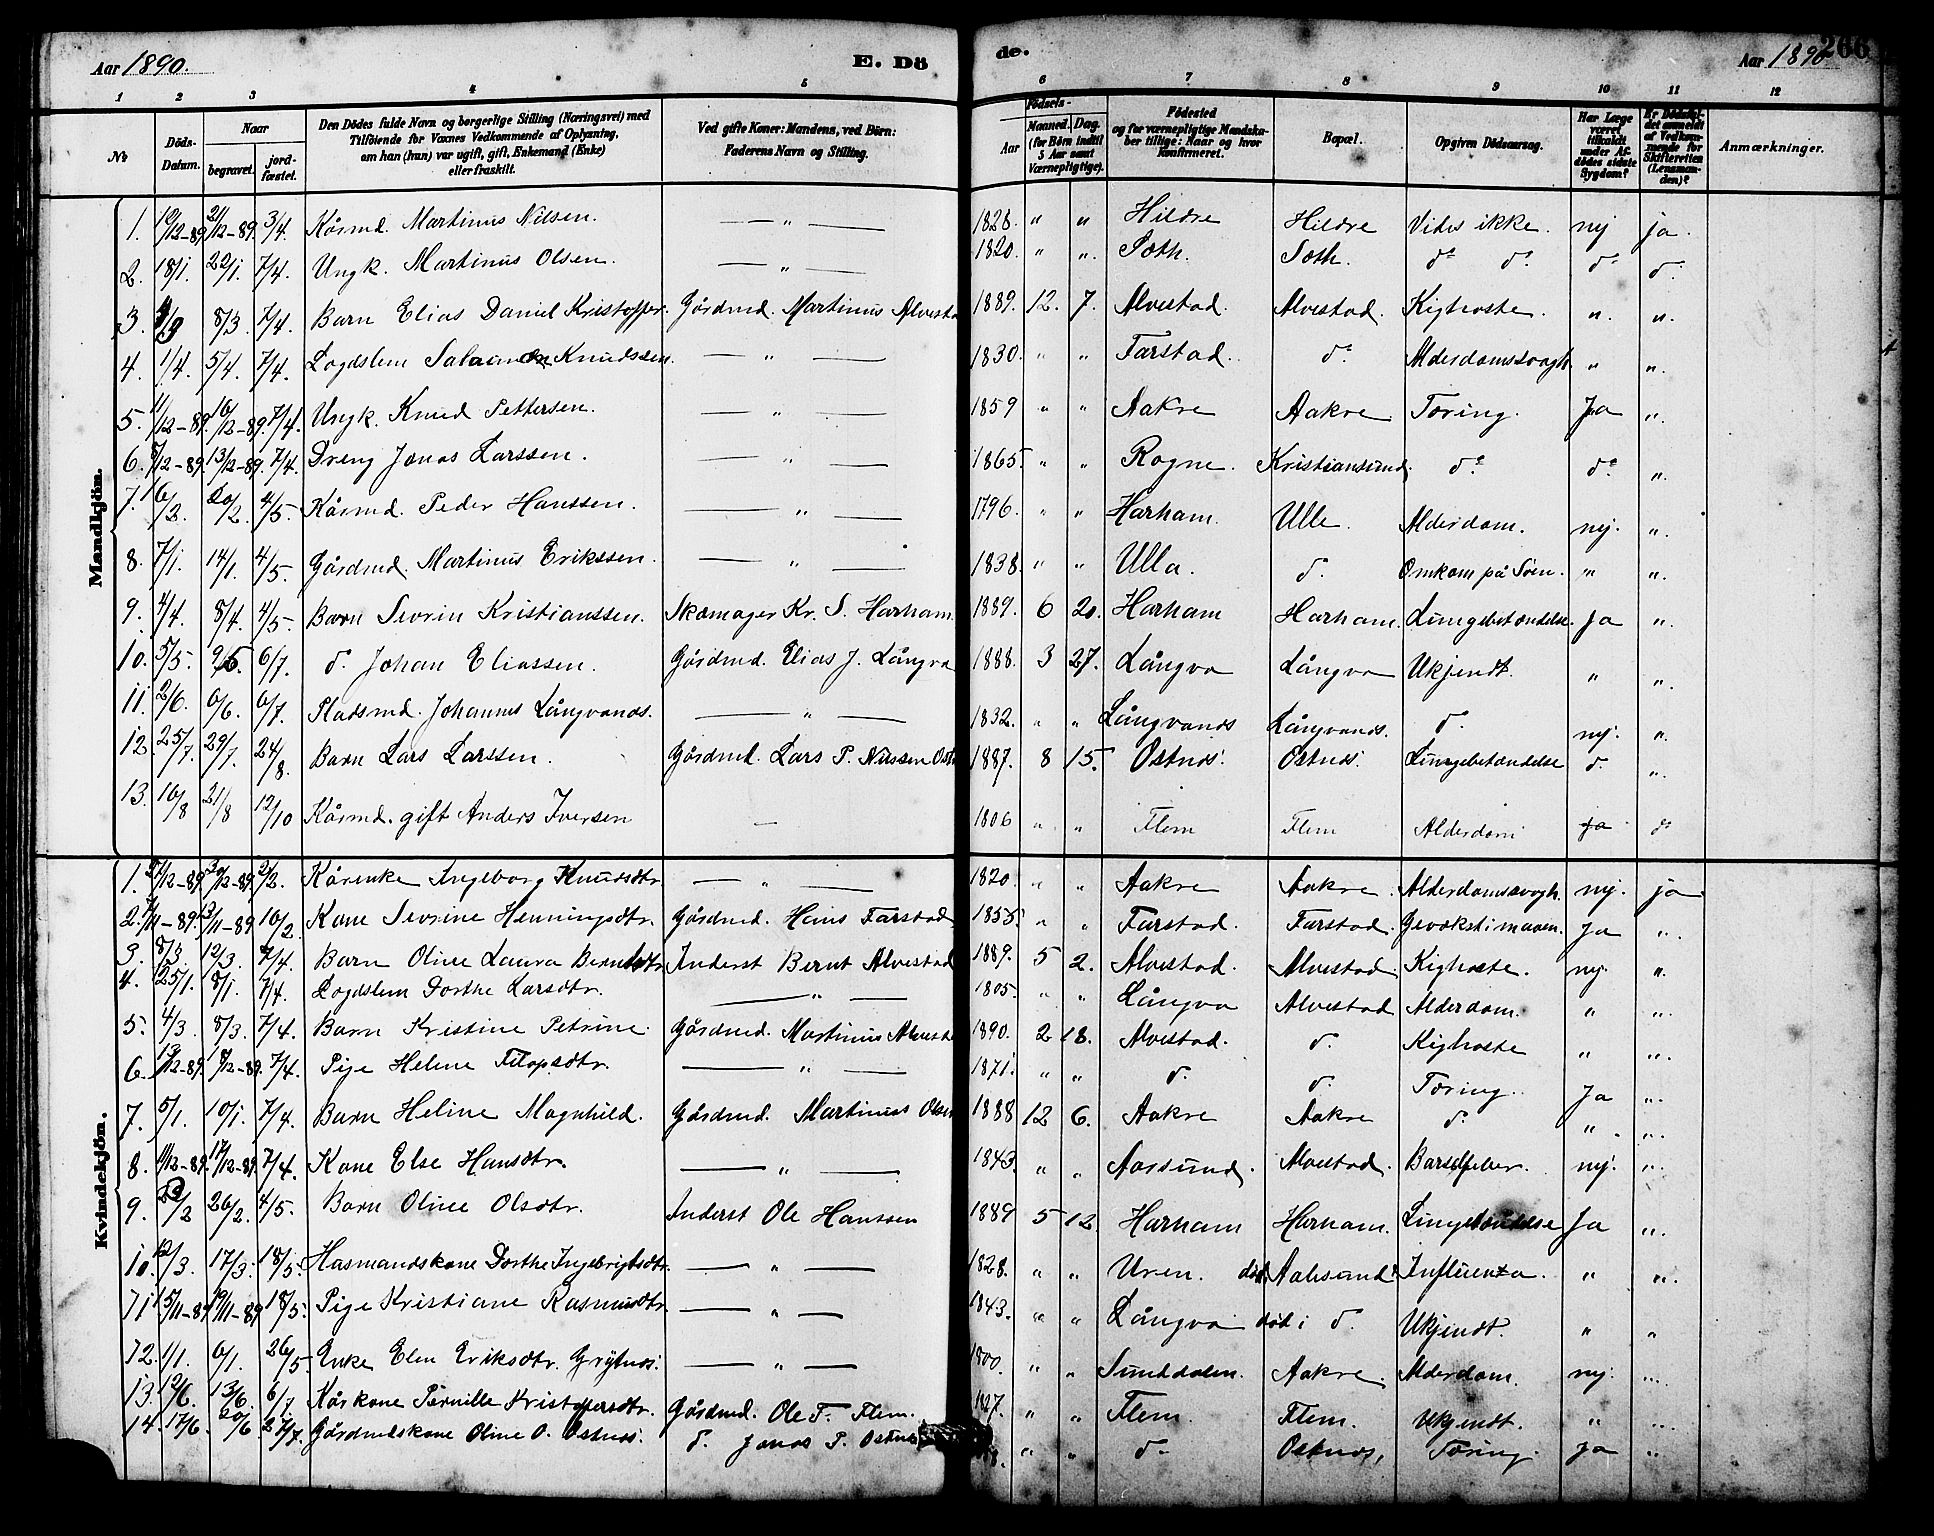 Aar 1890. E. Dö de. Aar 1890 266
1 2 3 4 5 6 7 8 9 10 11 12
№ Döds-Datum. Naar begravet. jord-fæstet. Den Dödes fulde Navn og borgerlige Stilling (Næringsvei) med Tilföiende for Voxnes Vedkommende af Oplysning, om han (hun) var ugift, gift, Enkemand (Enke) eller fraskilt. Ved gifte Koner: Mandens, ved Börn: Faderens Navn og Stilling. Födsels- Aar Maaned. Dag. (for Börn indtil 5 Aar samt Værnepligtige). Födested og for værnepligtige Mandskaber tillige: Naar og hvor konfirmeret. Bopæl. Opgiven Dödsaarsag. Har Læge været tilkaldt under Afdödes sidste Sygdom? Er Dödsfaldet anmeldt af Vedkommende for Skifteretten (Lensmanden)? Anmærkninger.
Mandkjön.
1. 16/12-89. 21/12-89. 3/4. Kårmd. Martinus Nilsen. — " — 1828. " " Hildre Hildre Vides ikke. nej ja.
2. 18/1. 22/1. 7/4. Ungk. Martinus Olsen. — " — 1820. " ". Søth. Søth. do do. do do.
3. 8/3. 7/4. Barn Elias Daniel Kristoffer. Gårdmd. Martinus Alvestad 1889. 12. 7. Alvestad. Alvestad. Kighoste. ". ".
4. 1/4. 5/4. 7/4. Logdslem Salamon Knudssen. — " — 1830. " " Farstad. do Alderdomssvagh. " ".
5. 11/12-89. 16/12-89. 7/4. Ungk. Knud Pettersen. — " — 1859 " " Aakre Aakre Tæring. Ja ".
6. 8/12-89. 13/12-89. 7/4. Dreng Jonas Larssen. — " — 1865. " " Rogne. Kristiansund. do. do. ".
7. 16/2. 20/2. 4/5. Kårmd. Peder Hanssen. — " — 1796. " " Harham. Ulle. Alderdom. nej. ".
8. 7/1. 14/1. 4/5. Gårdmd. Martinus Erikssen. — " — 1838. " " Ulla. do. Omkom på Søen. " ".
9. 4/4. 8/4. 4/5. Barn Sevrin Kristianssen. Skomager Kr. S. Harham. 1889. 6 20. Harham Harham. Lungebetændelse. Ja ".
10. 5/5. 9/5. 6/7. do. Johan Eliassen. Gårdmd. Elias J. Långva 1888. 3 27. Långva Långva Ukjendt. " ".
11. 2/6. 6/6. 6/7. Pladsmd. Johannes Långvanes. — " — 1832. " " Långvanes Långvanes. do. nej. ".
12. 25/7. 29/7. 24/8. Barn Lars Larssen. Gårdmd. Lars P. Nilssen 1887. 8 15. Østnes. Østnes. Lungebetændelse do. ".
13. 16/8 21/8 12/10 Kårmd. gift Anders Iversen — 1806 " " Flem Flem Alderdom Ja do
Kvindekjön.
1. 30/12-89. 2/2. Kårenke Ingeborg Knudsdtr. — " — 1820. " " Aakre Aakre. Alderdomssvagh. nej. ja
2. 13/11-89 16/2. Kone Sevrine Henningsdtr. Gårdmd. Hans Farstad 1855. " " Farstad. Farstad. Gevækst i maven. Ja ".
3. 8/3. 12/3. 7/4. Barn Oline Laura Berntsdtr. Inderst Bernt Alvestad 1889. 5 2. Alvestad. Alvestad. Kighoste. nej. ".
4. 8/1. 7/4. Logdslem Dorthe Larsdtr. — " — 1805. " " Långva Alvestad Alderdom. " ".
5. 4/3. 8/3. 7/4. Barn Kristine Petrine. Gårdmd. Martinus Alvestad 1890. 2 18. Alvestad. do. Kighoste " ".
6. 13/12-89. 18/12-89. 7/4. Pige Helene Filopsdtr. — " — 1871. " " do. do. Tæring. Ja ".
7. 5/1. 10/1. 7/4. Barn Heline Magnhild. Gårdmd. Martinus Olsen 1888 12 6. Aakre Aakre do. " ".
8. 11/12-89. 17/12-89. 7/4. Kone Else Hansdtr. — " — 1843. " " Aarsund. Alvestad. Barselfeber. nej. ".
9. 26/2. 4/5. Barn Oline Olsdtr. Inderst Ole Hanssen 1889 5 12. Harham Harham. Lungebetændelse Ja ".
10. 12/3. 17/3. 18/5. Husmandskone Dorthe Ingebrigtsdtr. — " — 1828. " " Uren. død Aalesund. Influenza. " ".
11 15/11-89 19/11-89 18/5. Pige Kristiane Rasmusdtr. — " — 1843. " " Långva død i do. Ukjendt. " "
12. 1/1. 6/1. 26/5. Enke Elen Eriksdtr. Grytnes. — " — 1800. " " Sunddalen. Aakre. Alderdom. nej. ".
13. 12/6. 13/6. 6/7. Kårkone Pernille Kristoffersdtr. Gårdmd. Ole T. Flem. 1827. " " Flem. Flem. Ukjendt. " ".
14. 17/6. 20/6 27/7. Gårdmdskone Oline O. Østnes. do. Jonas P. Østnes " " do. Østnes, Tæring. Ja "